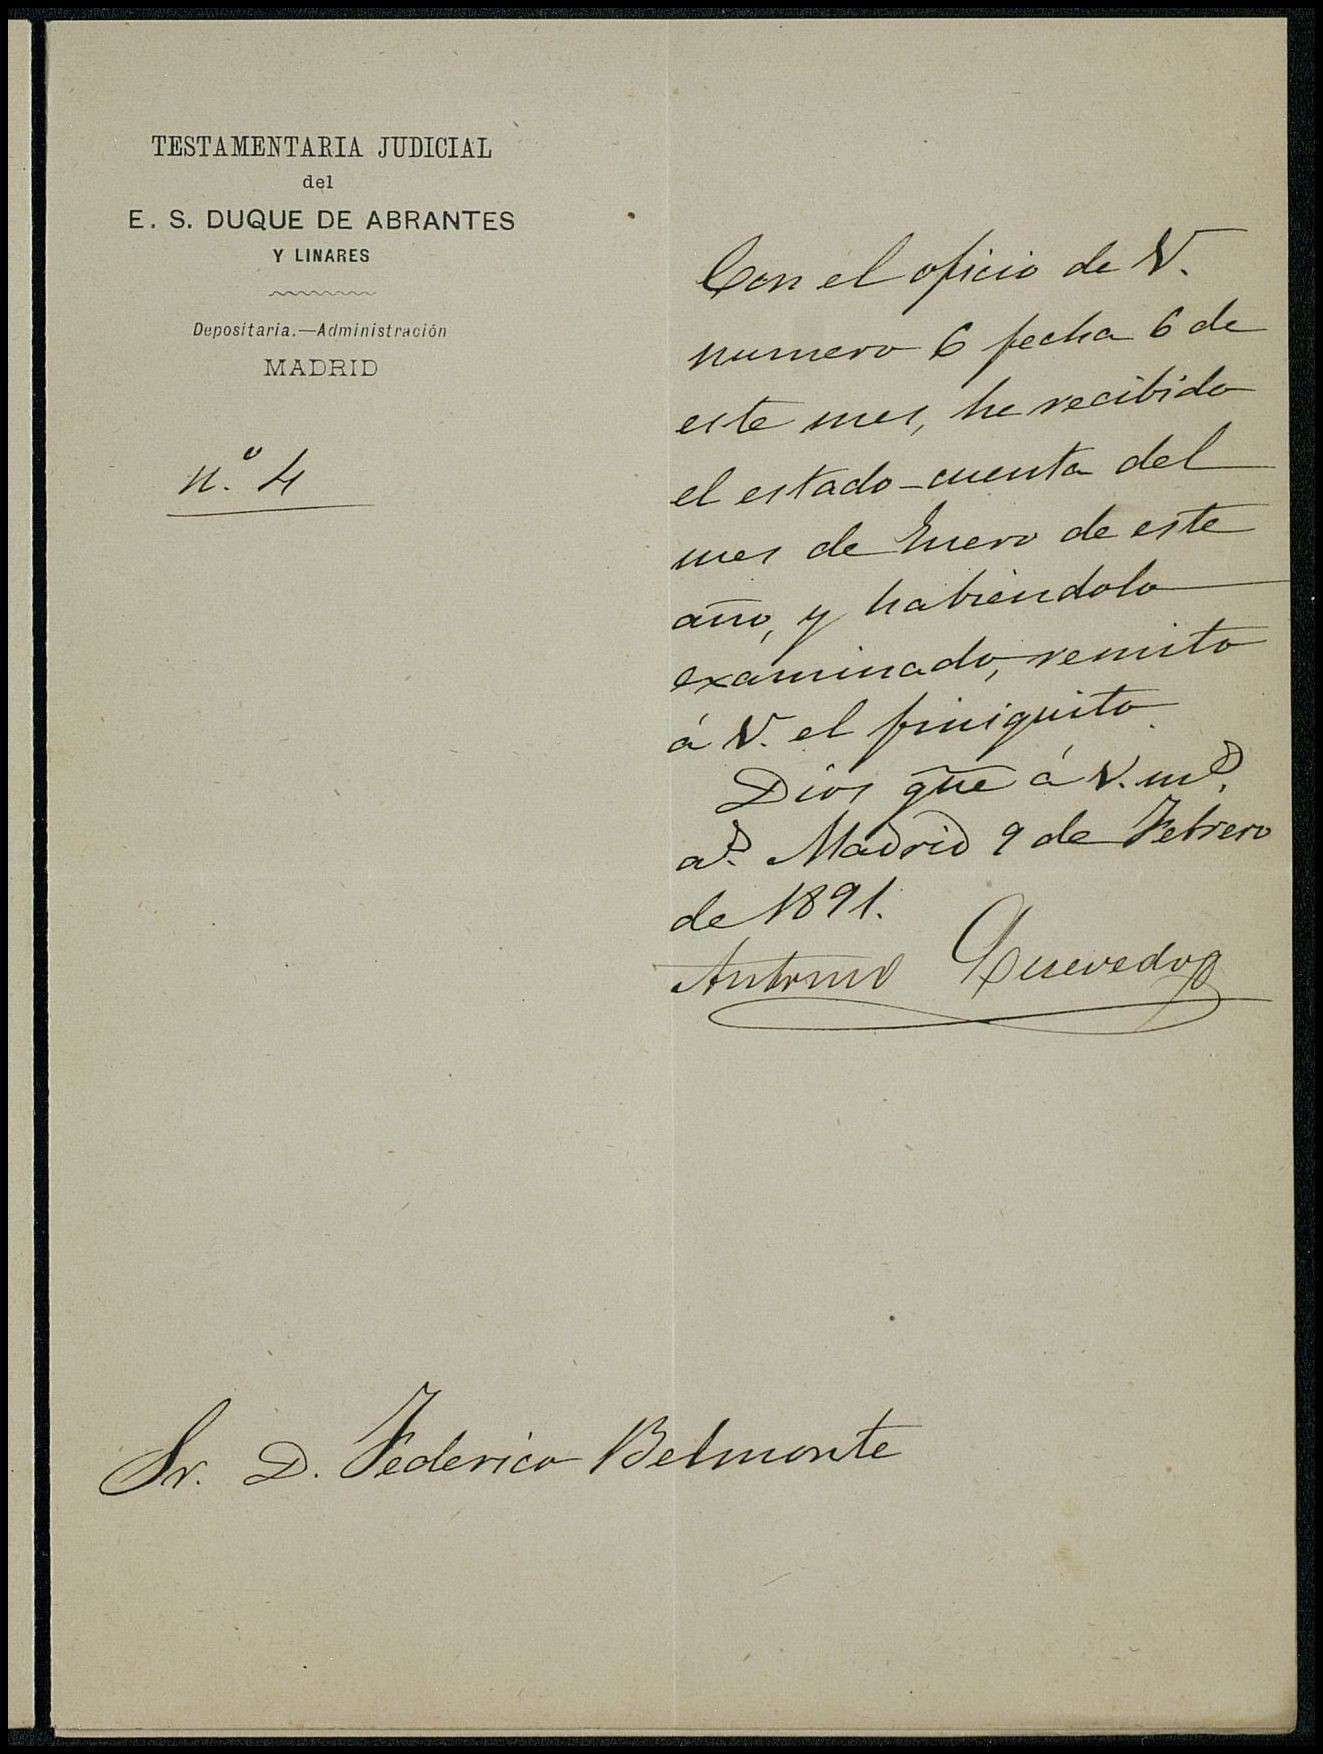 TESTAMENTARIA JUDICIAL
del
E. S. DUQUE DE ABRANTES
Y LINARES
Depositaria.—Administración
MADRID
n.º 4
Con el oficio de V.
numero 6 fecha 6 de
este mes, he recibido
el estado-cuenta del
mes de Enero de este
año, y habiéndolo
examinado, remito
á V. el finiquito.
Dios gũe á V. m.ˢ
a.ˢ Madrid 9 de Febrero
de 1891.
Antonio Quevedo
Sr. D. Federico Belmonte